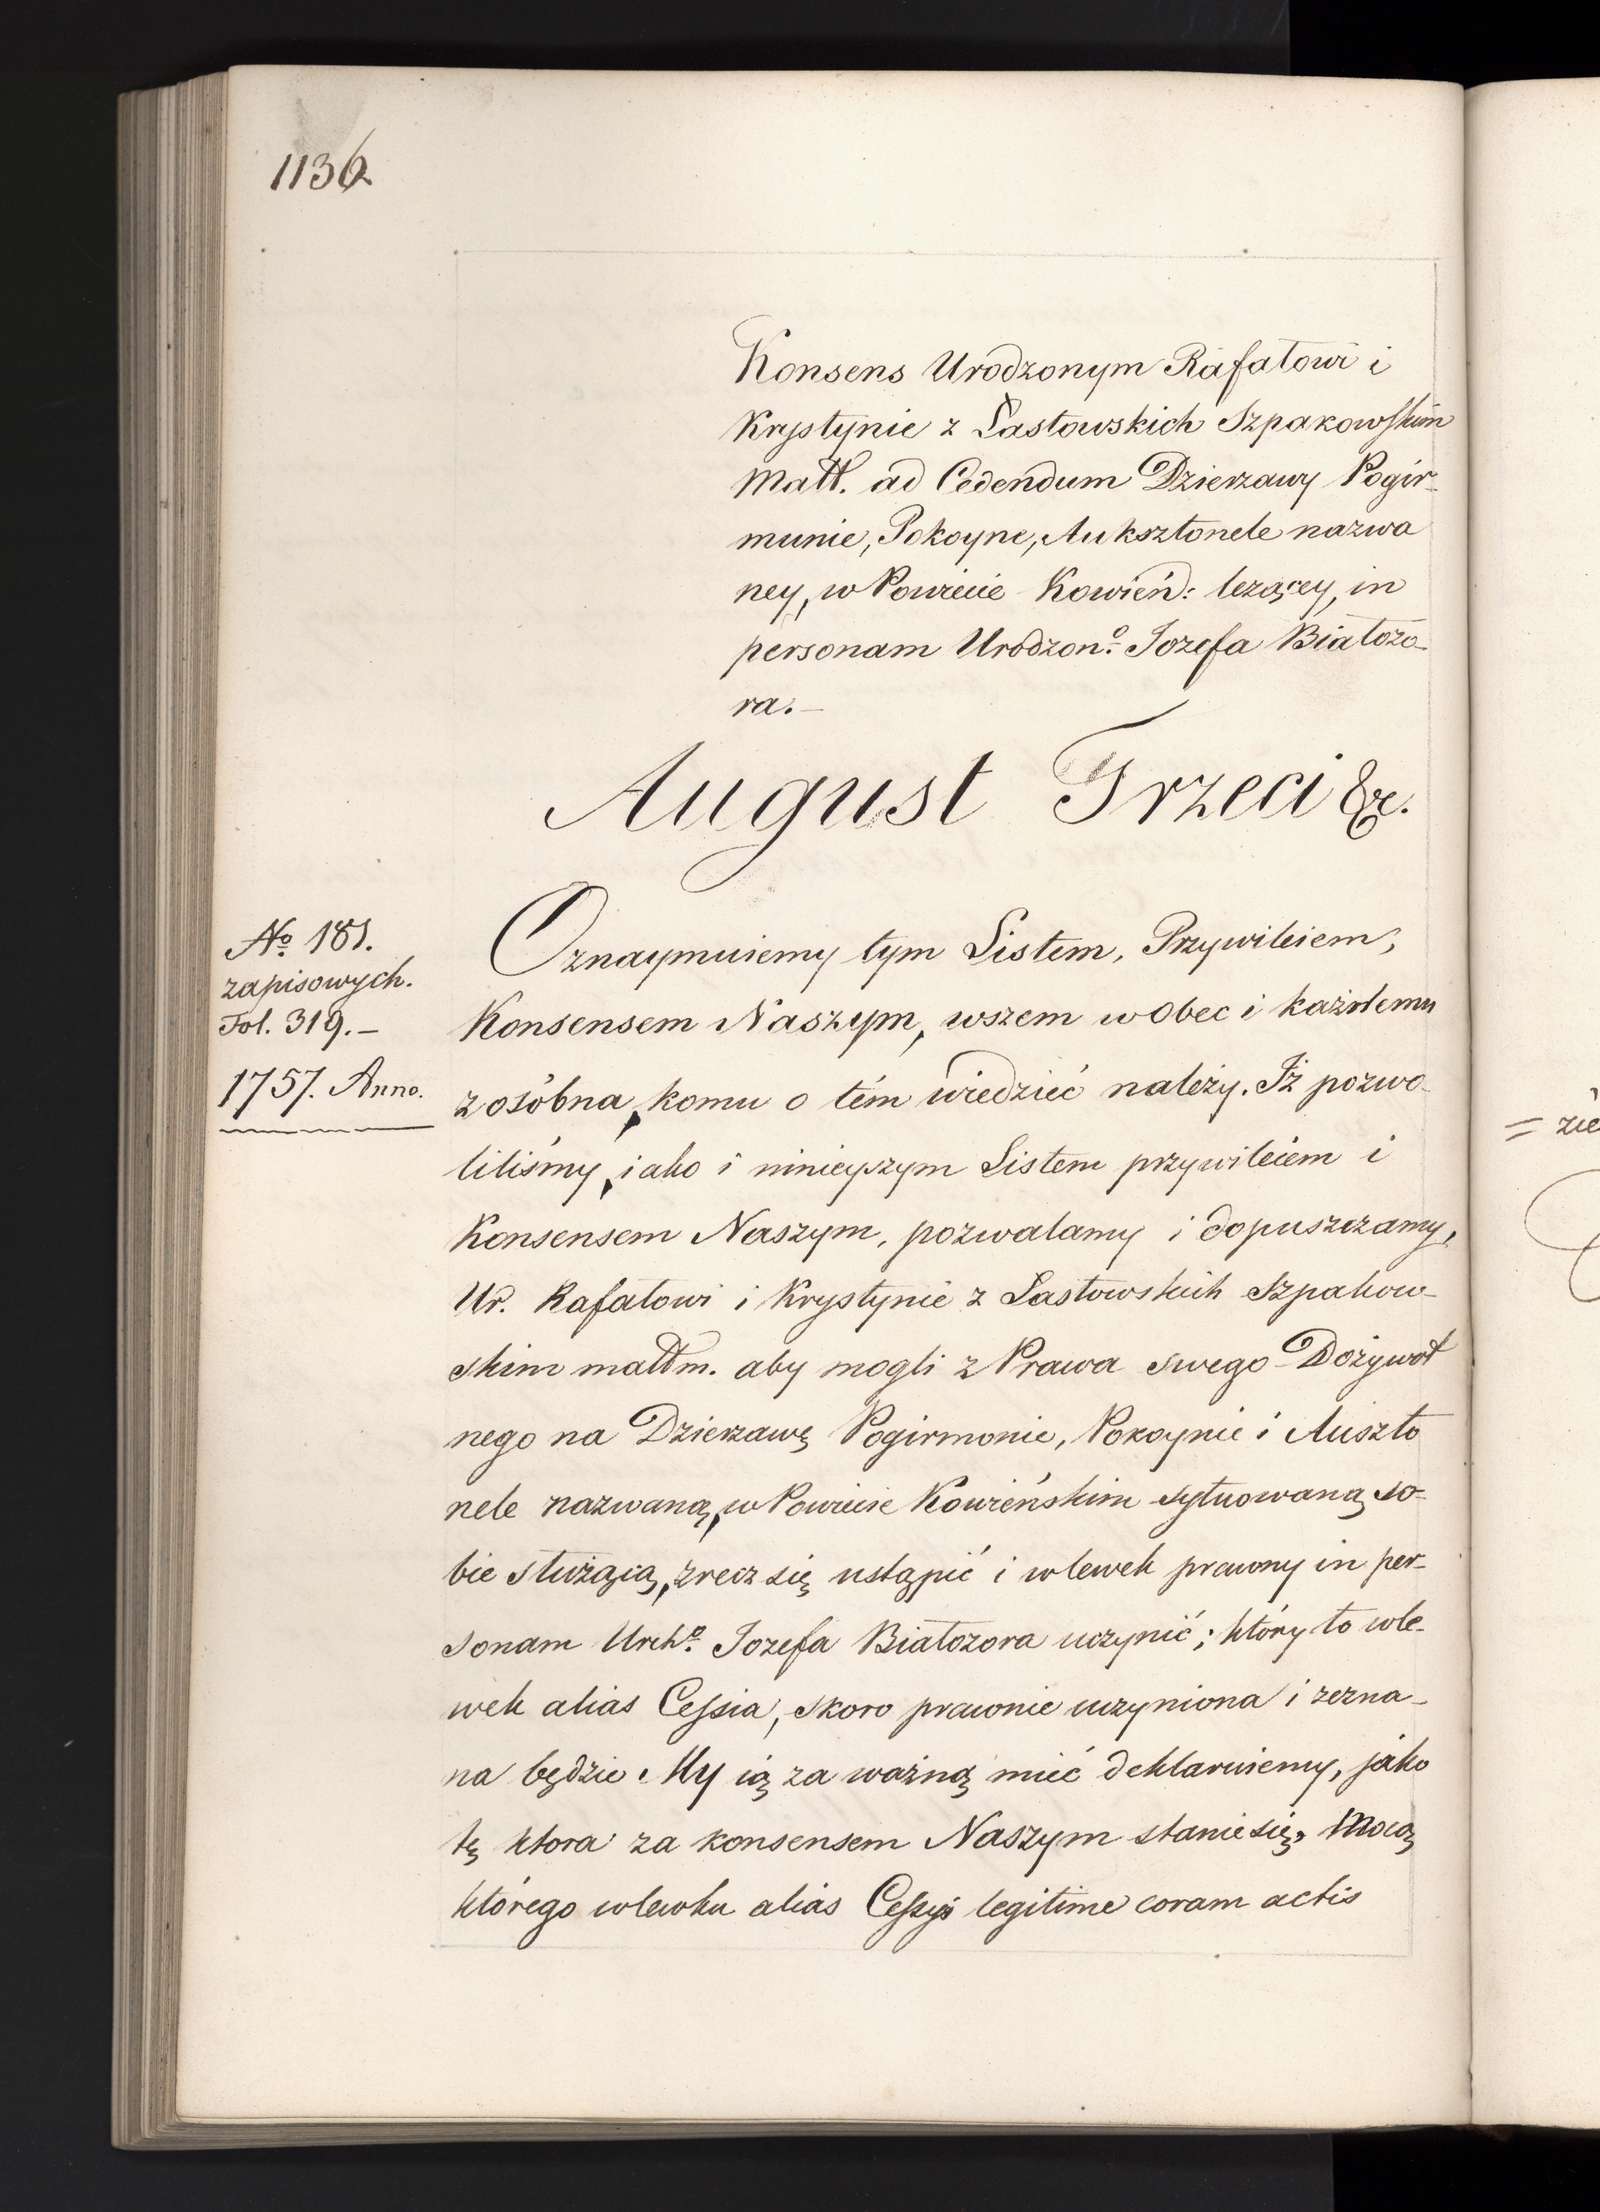 1136
Konsens Urodzonym Rafałowi i
Krystynie z Łastowskich Szpakowskim
Małł. ad Cedendum Dzierzawy Pogir-
munie, Pokoyne, Auksztonele nazwa
ney, w Powiecie Kowień: leżącey, in
personam Urodzon<sup>o</sup>. Jozefa Białozo-
ra.—
August Trzeci &r.
No 181.
zapisowych.
Fol. 319.—
1757. Anno.
Oznaymuiemy tym Listem, Przywileiem,
Konsensem Naszym, wszem wobec i każdemu
zosóbna, komu o tém wiedzieć należy. Iż pozwo-
liliśmy, iako i ninieyszym Listem przywileiem i
Konsensem Naszym, pozwalamy i dopuszczamy,
Ur. Rafałowi i Krystynie z Łastowskich Szpakow-
skim małłm. aby mogli z Prawa swego Dożywot
nego na Dzierzawę Pogirmonie, Pokoynie i Auszto
nele nazwaną, w Powiecie Kowieńskim sytuowaną so-
bie służącą, zrecz się ustąpić i wlewek prawny in per-
sonam Urch<sup>o</sup>. Jozefa Białozora uczynić; który to wle-
wek alias Cessia, skoro prawnie uczyniona i zezna-
na będzie My ią za ważną mieć deklaruiemy, jako
tę ktora za konsensem Naszym stanie się, Mocą
którego wlewku alias Cessyi legitime coram actis
= zie